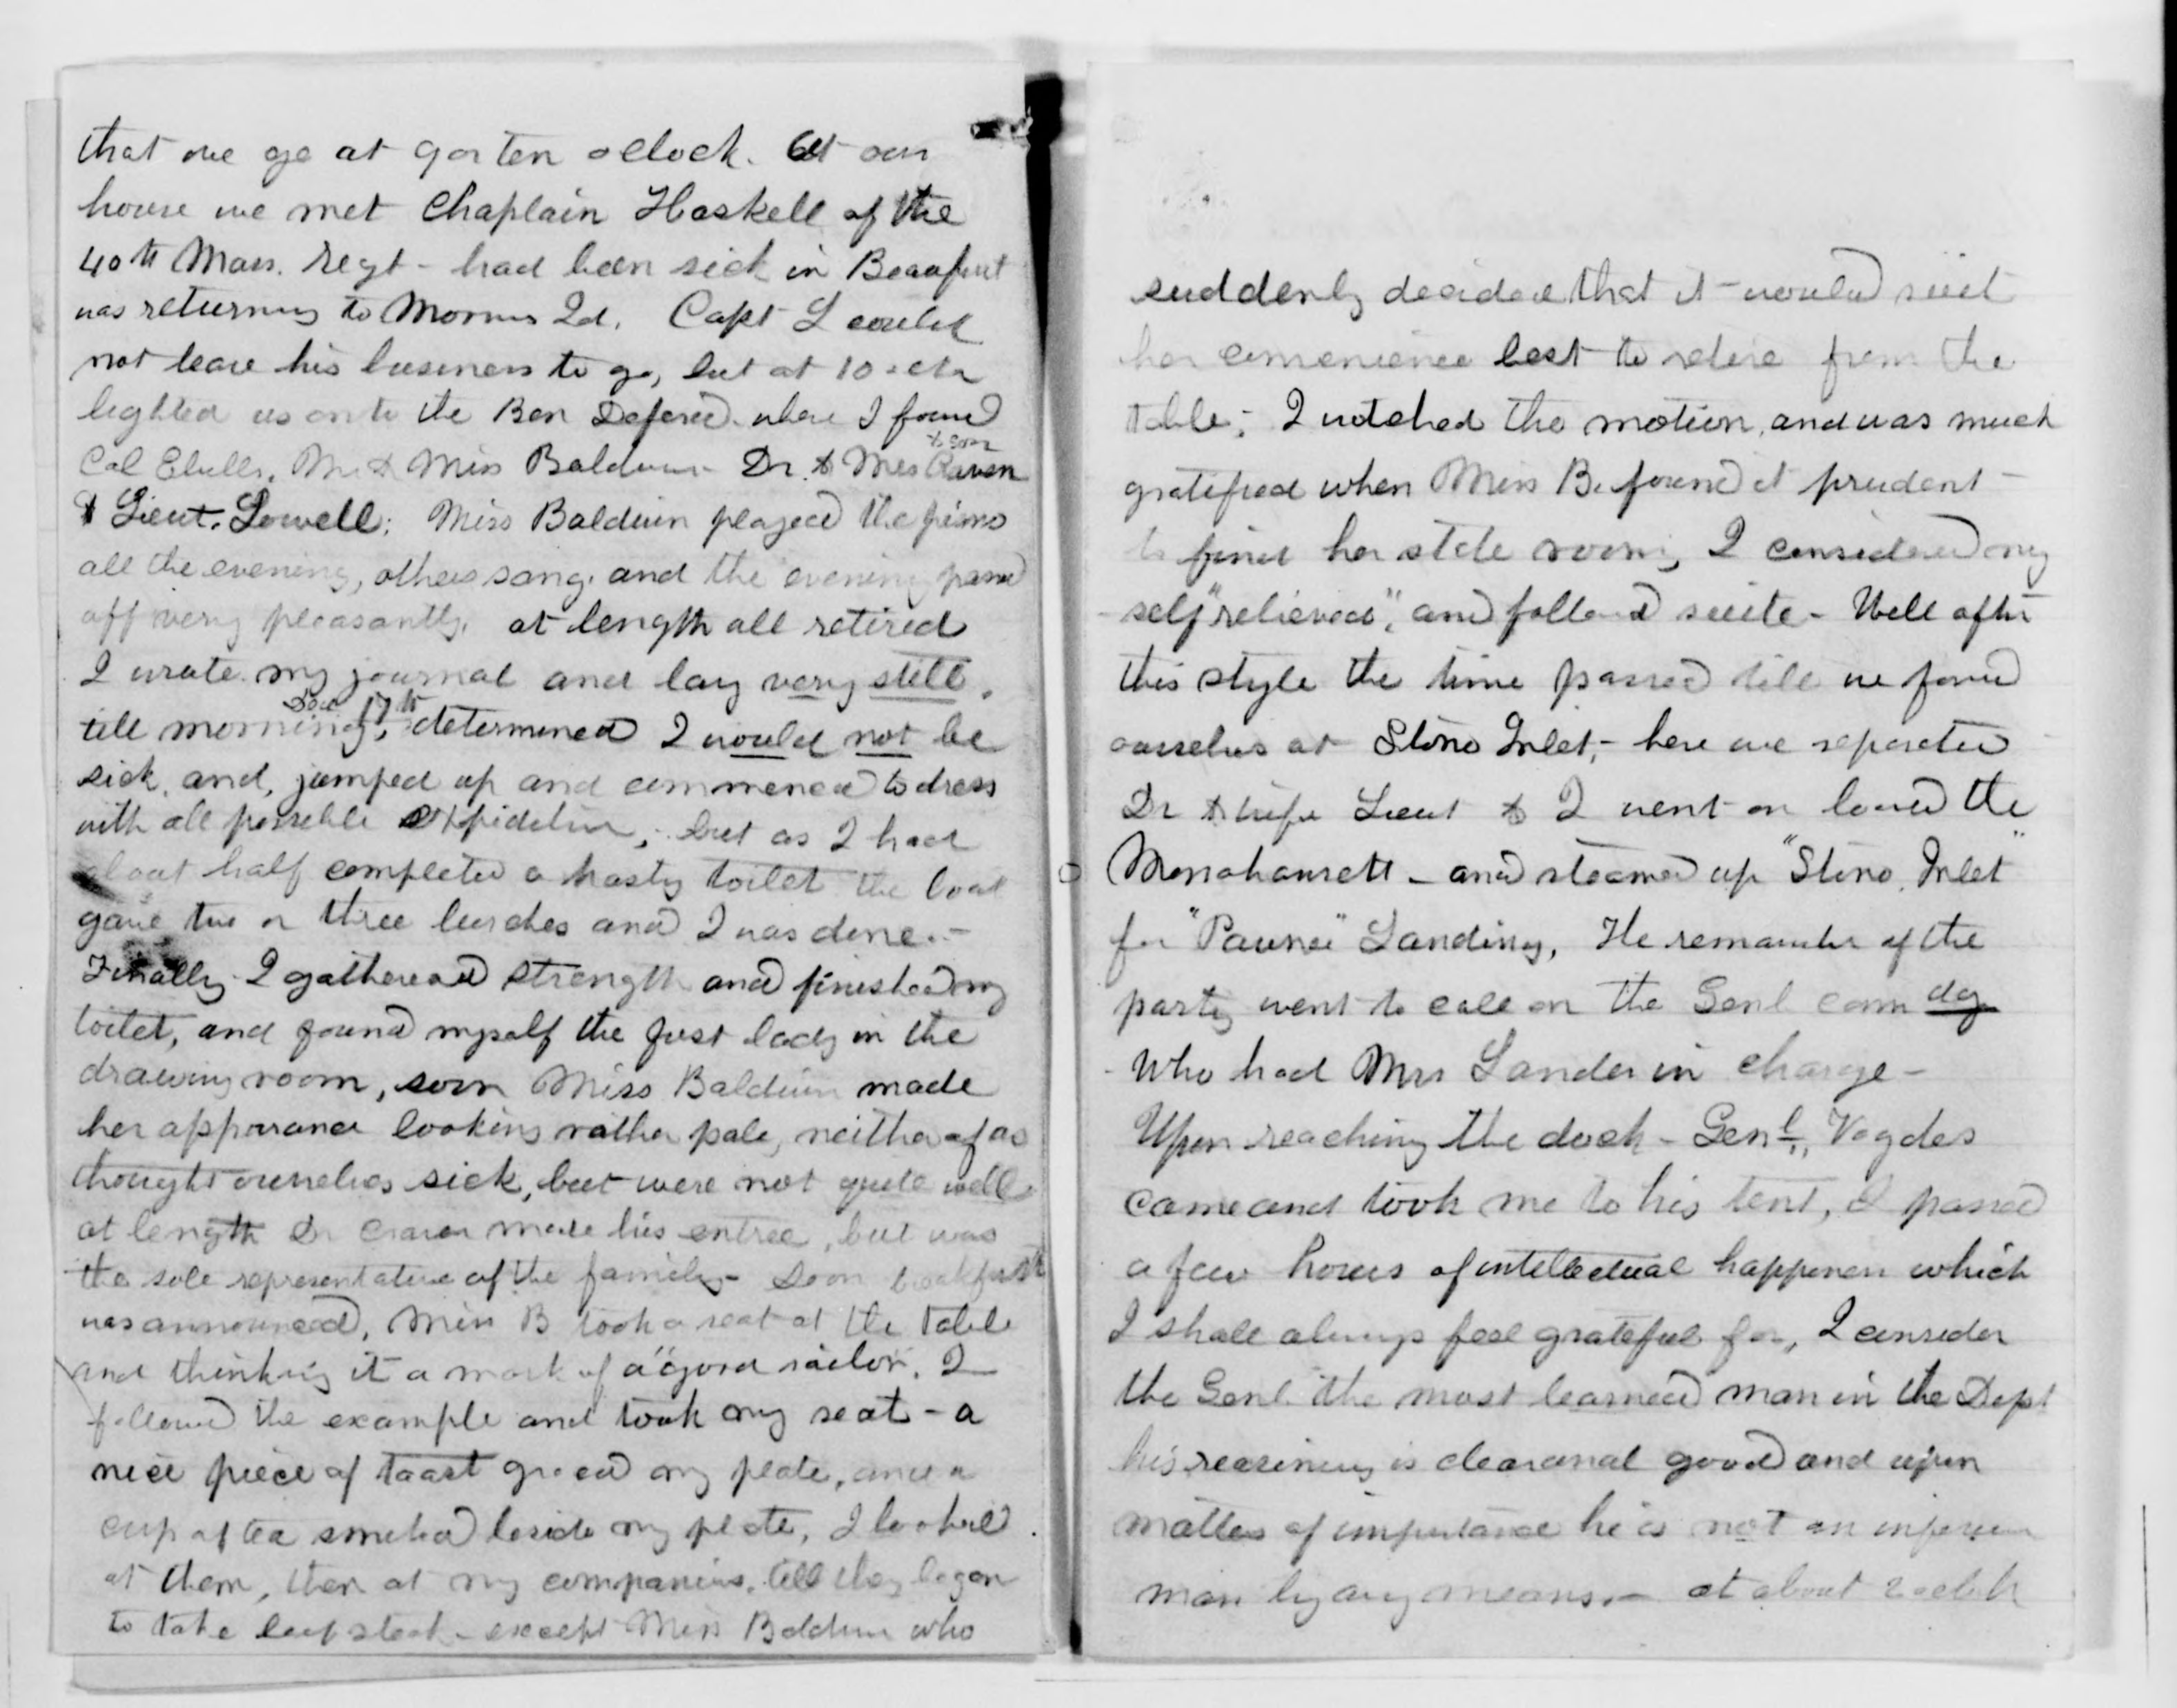 that we go at 9 or ten oclock. At our
house we met Chaplain Haskell of the
40th Mass. regt - had been sick in Beaufort
was returning to Morris Id. Capt L could
not leave his business to go, but at 10 oclk
lighted us onto the Ben Deford. where I found
Col Elwell, Mr & Miss Baldwin Dr. & Mrs Craven
& son
& Lieut. Lowell; Miss Baldwin played the piano
all the evening, others sang. and the evening passed
off very pleasantly. at length all retired
I wrote my journal and lay very still.
Dec 17th
till morning, determined I would not be
sick, and, jumped up and commenced to dress
with all possible expidition, but as I had
about half completed a hasty toilet the boat
gave two or three lurches and I was done.-
Finally I gathered strength and finished my
toilet, and found myself the first lady in the
drawing room, soon Miss Baldwin made
her apperance looking rather pale, neither of us
thought ourselves sick, but were not quite well
at length Dr Craven made his entree, but was
the sole representative of the family - Soon breakfast
was announced, Miss B took a seat at the table
and thinking it a mark of a "good sailor. I
followed the example and took my seat - a
nice piece of toast graced my plate, and a
cup of tea smoked beside my plate, I looked
at them, then at my companions, till they began
to take beef steak - except Miss Baldwin who
suddenly decided that it would suit
her convenience best to retire from the
table; I watched the motion, and was much
gratified when Miss B. found it prudent
to find her state room, I considered my
self "relieved", and followed suite - Well after
this style the time passed till we found
ourselves at Stono Inlet, - here we separated
Dr & wife Lieut & I went on board the
Monohansett - and steamed up "Stono Inlet"
for "Pawnee" Landing, The remainder of the
party went to call on the Genl comdg
- Who had Mrs Lander in charge -
Upon reaching the dock - Genl, Vogdes
came and took me to his tent, I passed
a few hours of intellectual happiness which
I shall always feel grateful for, I consider
the Genl the most learned man in the Dept
his reasoning is clear and good and upon
matters of importance he is not an inferior
man by any means. - at about 2 oclk